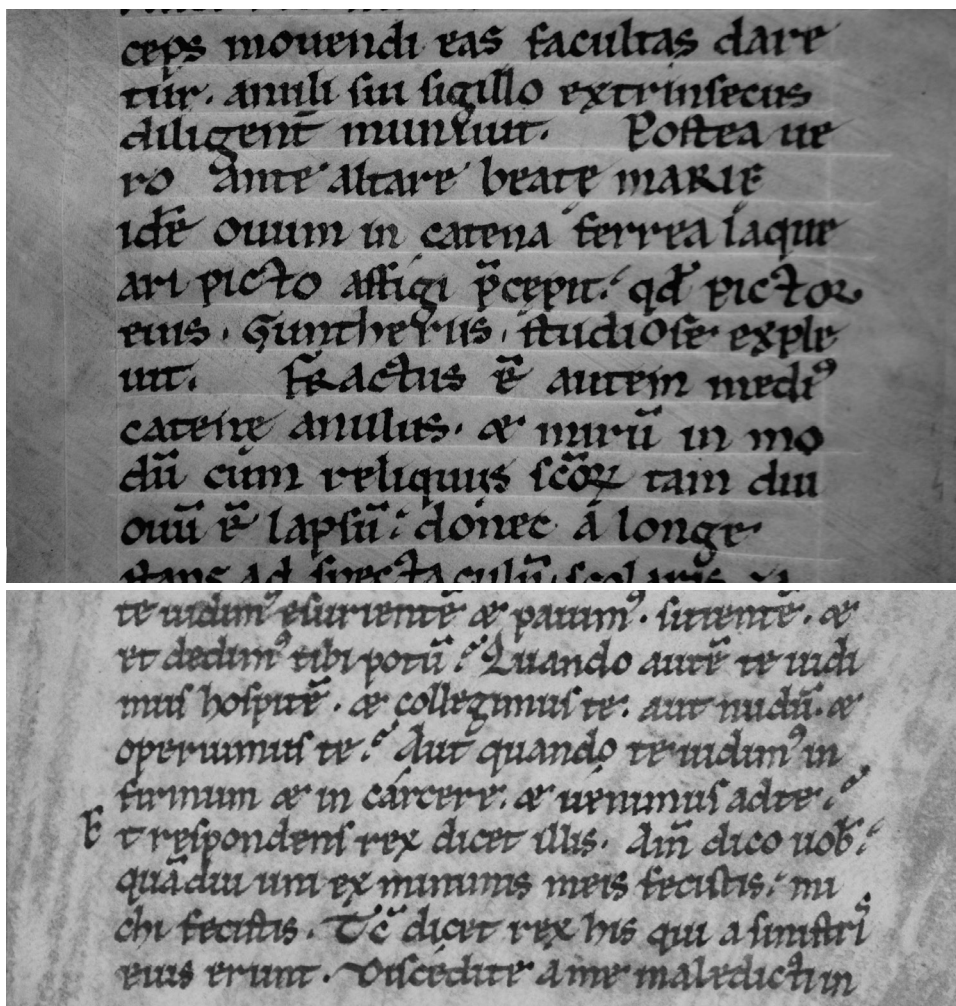 ceps mouendi eas facultas dare
tur. anuli sui sigillo extrinsecus
diligent̄ muniuit. Postea ue
ro ante altare beatę MARIĘ
idē ouum in catena ferrea laque
ari picto affigi p̄cepit. qd̄ pictor
eius. Guntherus. studiose exple
uit. fractus ē autem mediꝰ
catenę anulus. & mirū in mo
dū cum reliquiis scōꝝ tam diu
ouū ē lapsū: donec á longe
stans ad spectaculū. scolaris
te uidimꝰ esurientē & pauimꝰ. sitientē. &
et dedimꝰ tibi potū? Quando autē te uidi
mus hospitē. & collegimus te. aut nudū. &
operuimus te? Aut quando te uidimꝰ in
firmum & in cárcere. & uenimus ad te?
E t respondens rex dicet illis. Am̄ dico uob̄.
quādiu uni ex minimis meis fecistis. mi
chi fecistis. Tc̄ dicet rex his qui a sinistri
eius erunt. Discedite a me maledicti in